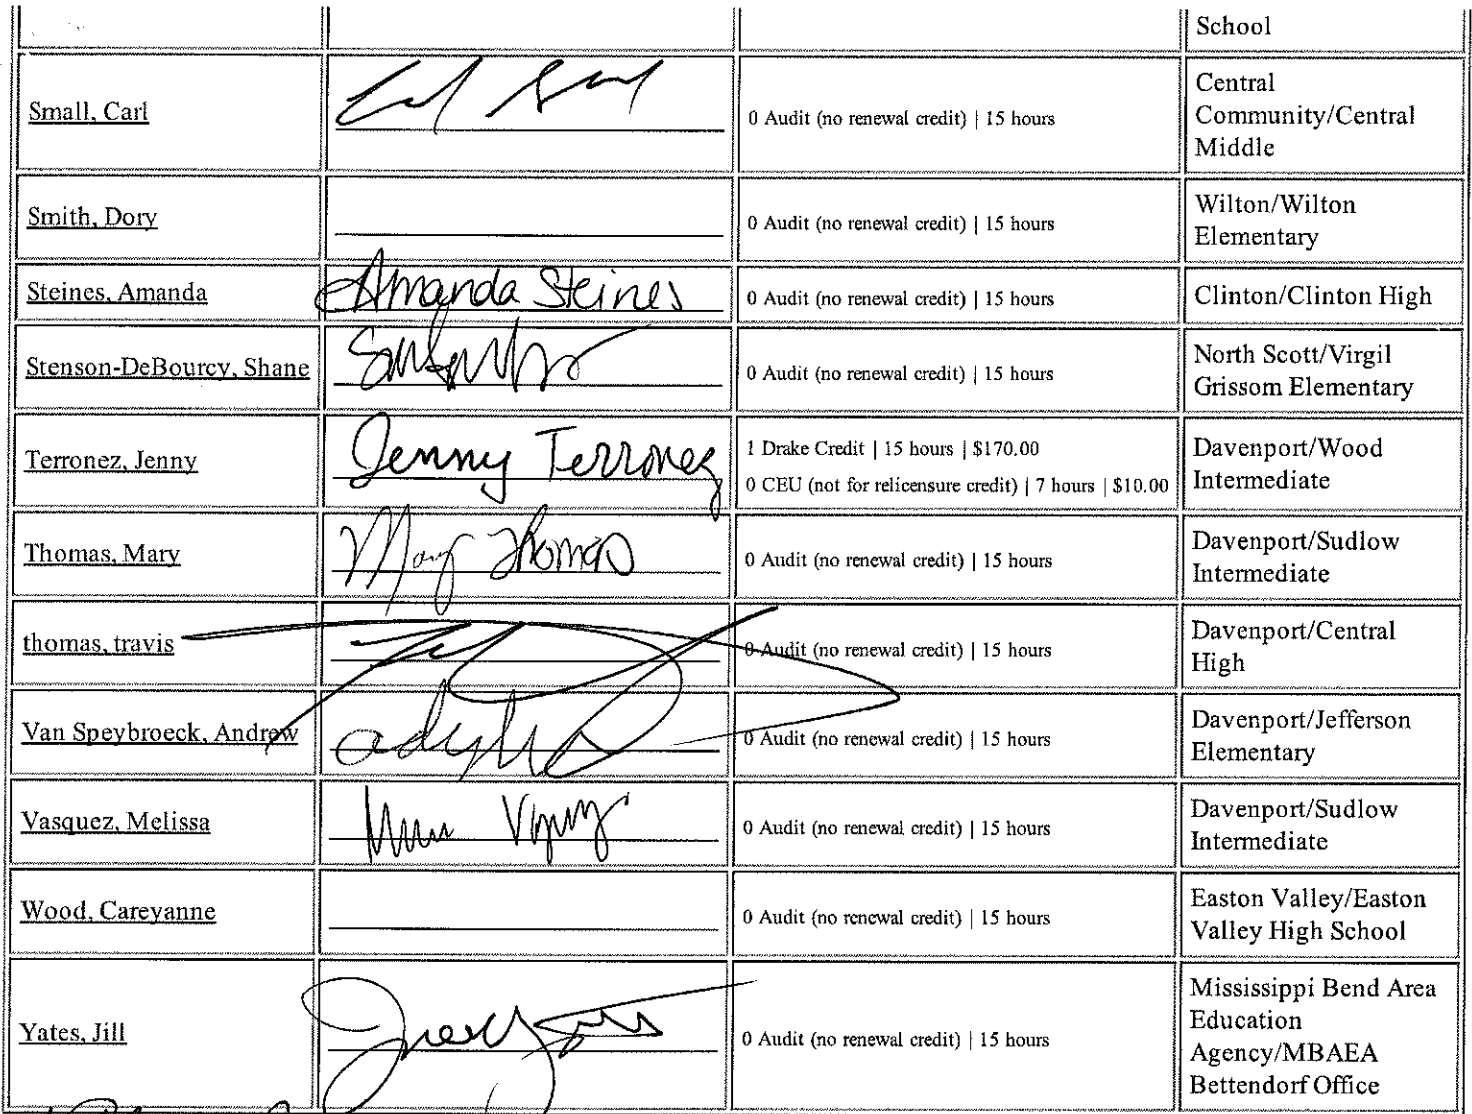 School
Small, Carl
0 Audit (no renewal credit) | 15 hours
Central
Community/Central
Middle
Smith, Dory
0 Audit (no renewal credit) | 15 hours
Wilton/Wilton
Elementary
Steines, Amanda
Amanda Steines
0 Audit (no renewal credit) | 15 hours
Clinton/Clinton High
Stenson-DeBourcy, Shane
0 Audit (no renewal credit) | 15 hours
North Scott/Virgil
Grissom Elementary
Terronez, Jenny
Jenny Terronez
1 Drake Credit | 15 hours | $170.00
0 CEU (not for relicensure credit) | 7 hours | $10.00
Davenport/Wood
Intermediate
Thomas, Mary
Mary Thomas
0 Audit (no renewal credit) | 15 hours
Davenport/Sudlow
Intermediate
thomas, travis
0 Audit (no renewal credit) | 15 hours
Davenport/Central
High
Van Speybroeck, Andrew
0 Audit (no renewal credit) | 15 hours
Davenport/Jefferson
Elementary
Vasquez, Melissa
0 Audit (no renewal credit) | 15 hours
Davenport/Sudlow
Intermediate
Wood, Careyanne
0 Audit (no renewal credit) | 15 hours
Easton Valley/Easton
Valley High School
Yates, Jill
0 Audit (no renewal credit) | 15 hours
Mississippi Bend Area
Education
Agency/MBAEA
Bettendorf Office